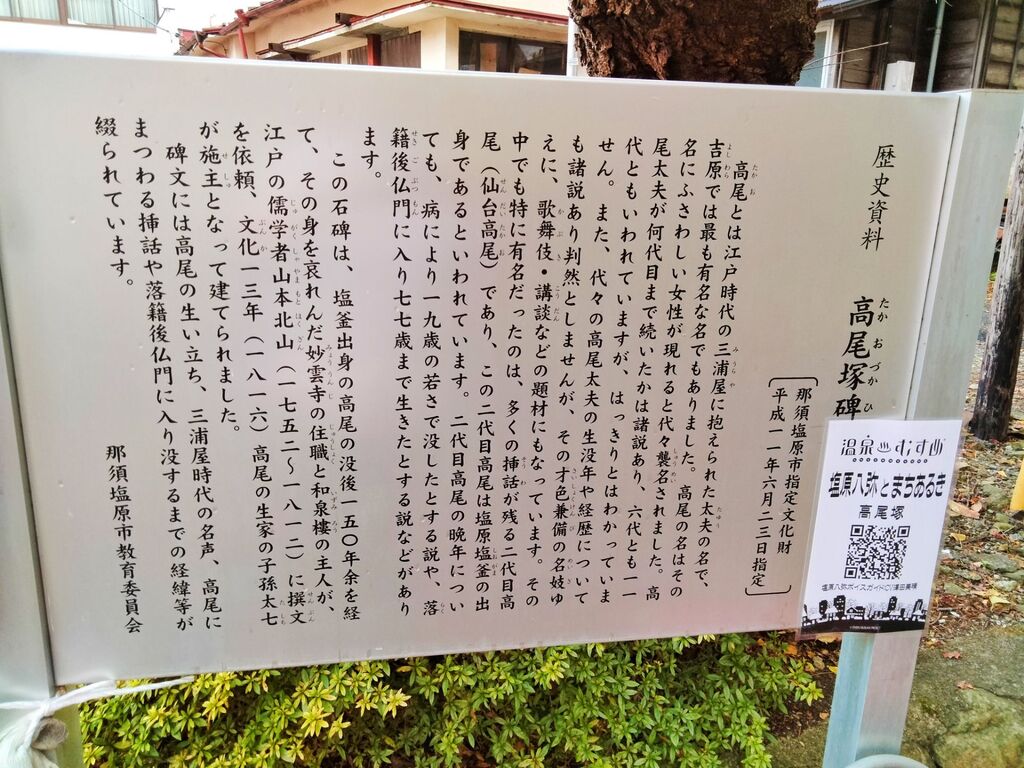 歴史資料 高尾塚碑
那須塩原市指定文化財
平成一一年六月二三日指定
高尾とは江戸時代の三浦屋に抱えられた太夫の名で、
吉原では最も有名な名でもありました。高尾の名はその
名にふさわしい女性が現れると代々襲名されました。高
尾太夫が何代目まで続いたかは諸説あり、六代とも一一
代ともいわれていますが、はっきりとはわかっていま
せん。また、代々の高尾太夫の生没年や経歴について
も諸説あり判然としませんが、その才色兼備の名妓ゆ
えに、歌舞伎・講談などの題材にもなっています。その
中でも特に有名だったのは、多くの挿話が残る二代目高
尾（仙台高尾）であり、この二代目高尾は塩原塩釜の出
身であるといわれています。二代目高尾の晩年につい
ても、病により一九歳の若さで没したとする説や、落
籍後仏門に入り七七歳まで生きたとする説などがあり
ます。
この石碑は、塩釜出身の高尾の没後一五〇年余を経
て、その身を哀れんだ妙雲寺の住職と和泉樓の主人が、
江戸の儒学者山本北山（一七五二～一八一二）に撰文
を依頼、文化一三年（一八一六）高尾の生家の子孫太七
が施主となって建てられました。
碑文には高尾の生い立ち、三浦屋時代の名声、高尾に
まつわる挿話や落籍後仏門に入り没するまでの経緯等が
綴られています。
那須塩原市教育委員会
温泉むすめ
塩原八弥とまちあるき
高尾塚